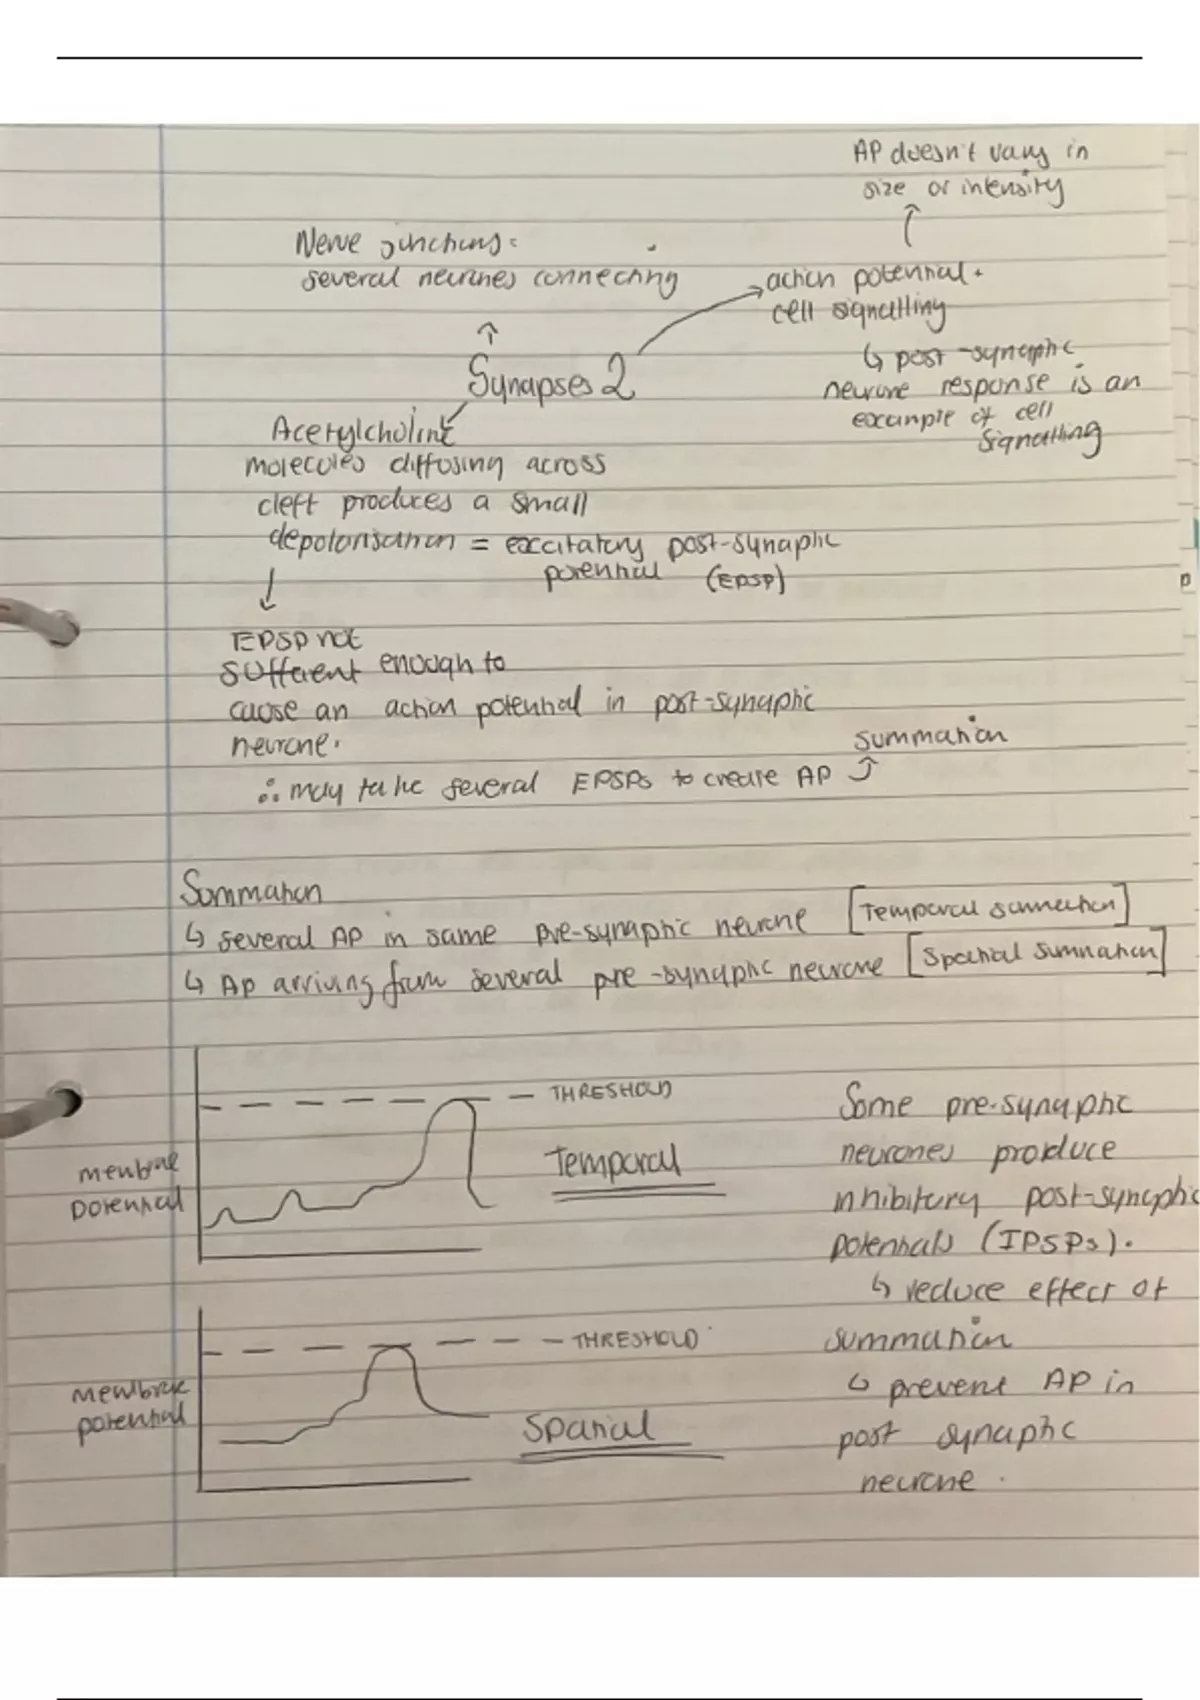 AP doesn't vary in
size or intensity
Nerve junctions:
several neurones connecting
action potential.
cell signalling
↳ post-synaptic
neurone response is an
example of cell
signalling
Synapses 2
Acetylcholine
molecules diffusing across
cleft produces a small
depolarisation = excitatory post-synaptic
potential (EPSP)
EPSP not
sufficient enough to
cause an action potential in post-synaptic
neurone.
summation
∴ may take several EPSPs to create AP
Summation
↳ several AP in same pre-synaptic neurone [Temporal summation]
↳ AP arriving from several pre-synaptic neurone [Spatial summation]
THRESHOLD
membrane
potential
Temporal
THRESHOLD
membrane
potential
Spatial
Some pre-synaptic
neurones produce
inhibitory post-synaptic
potentials (IPSPs).
↳ reduce effect of
summation
↳ prevent AP in
post synaptic
neurone.